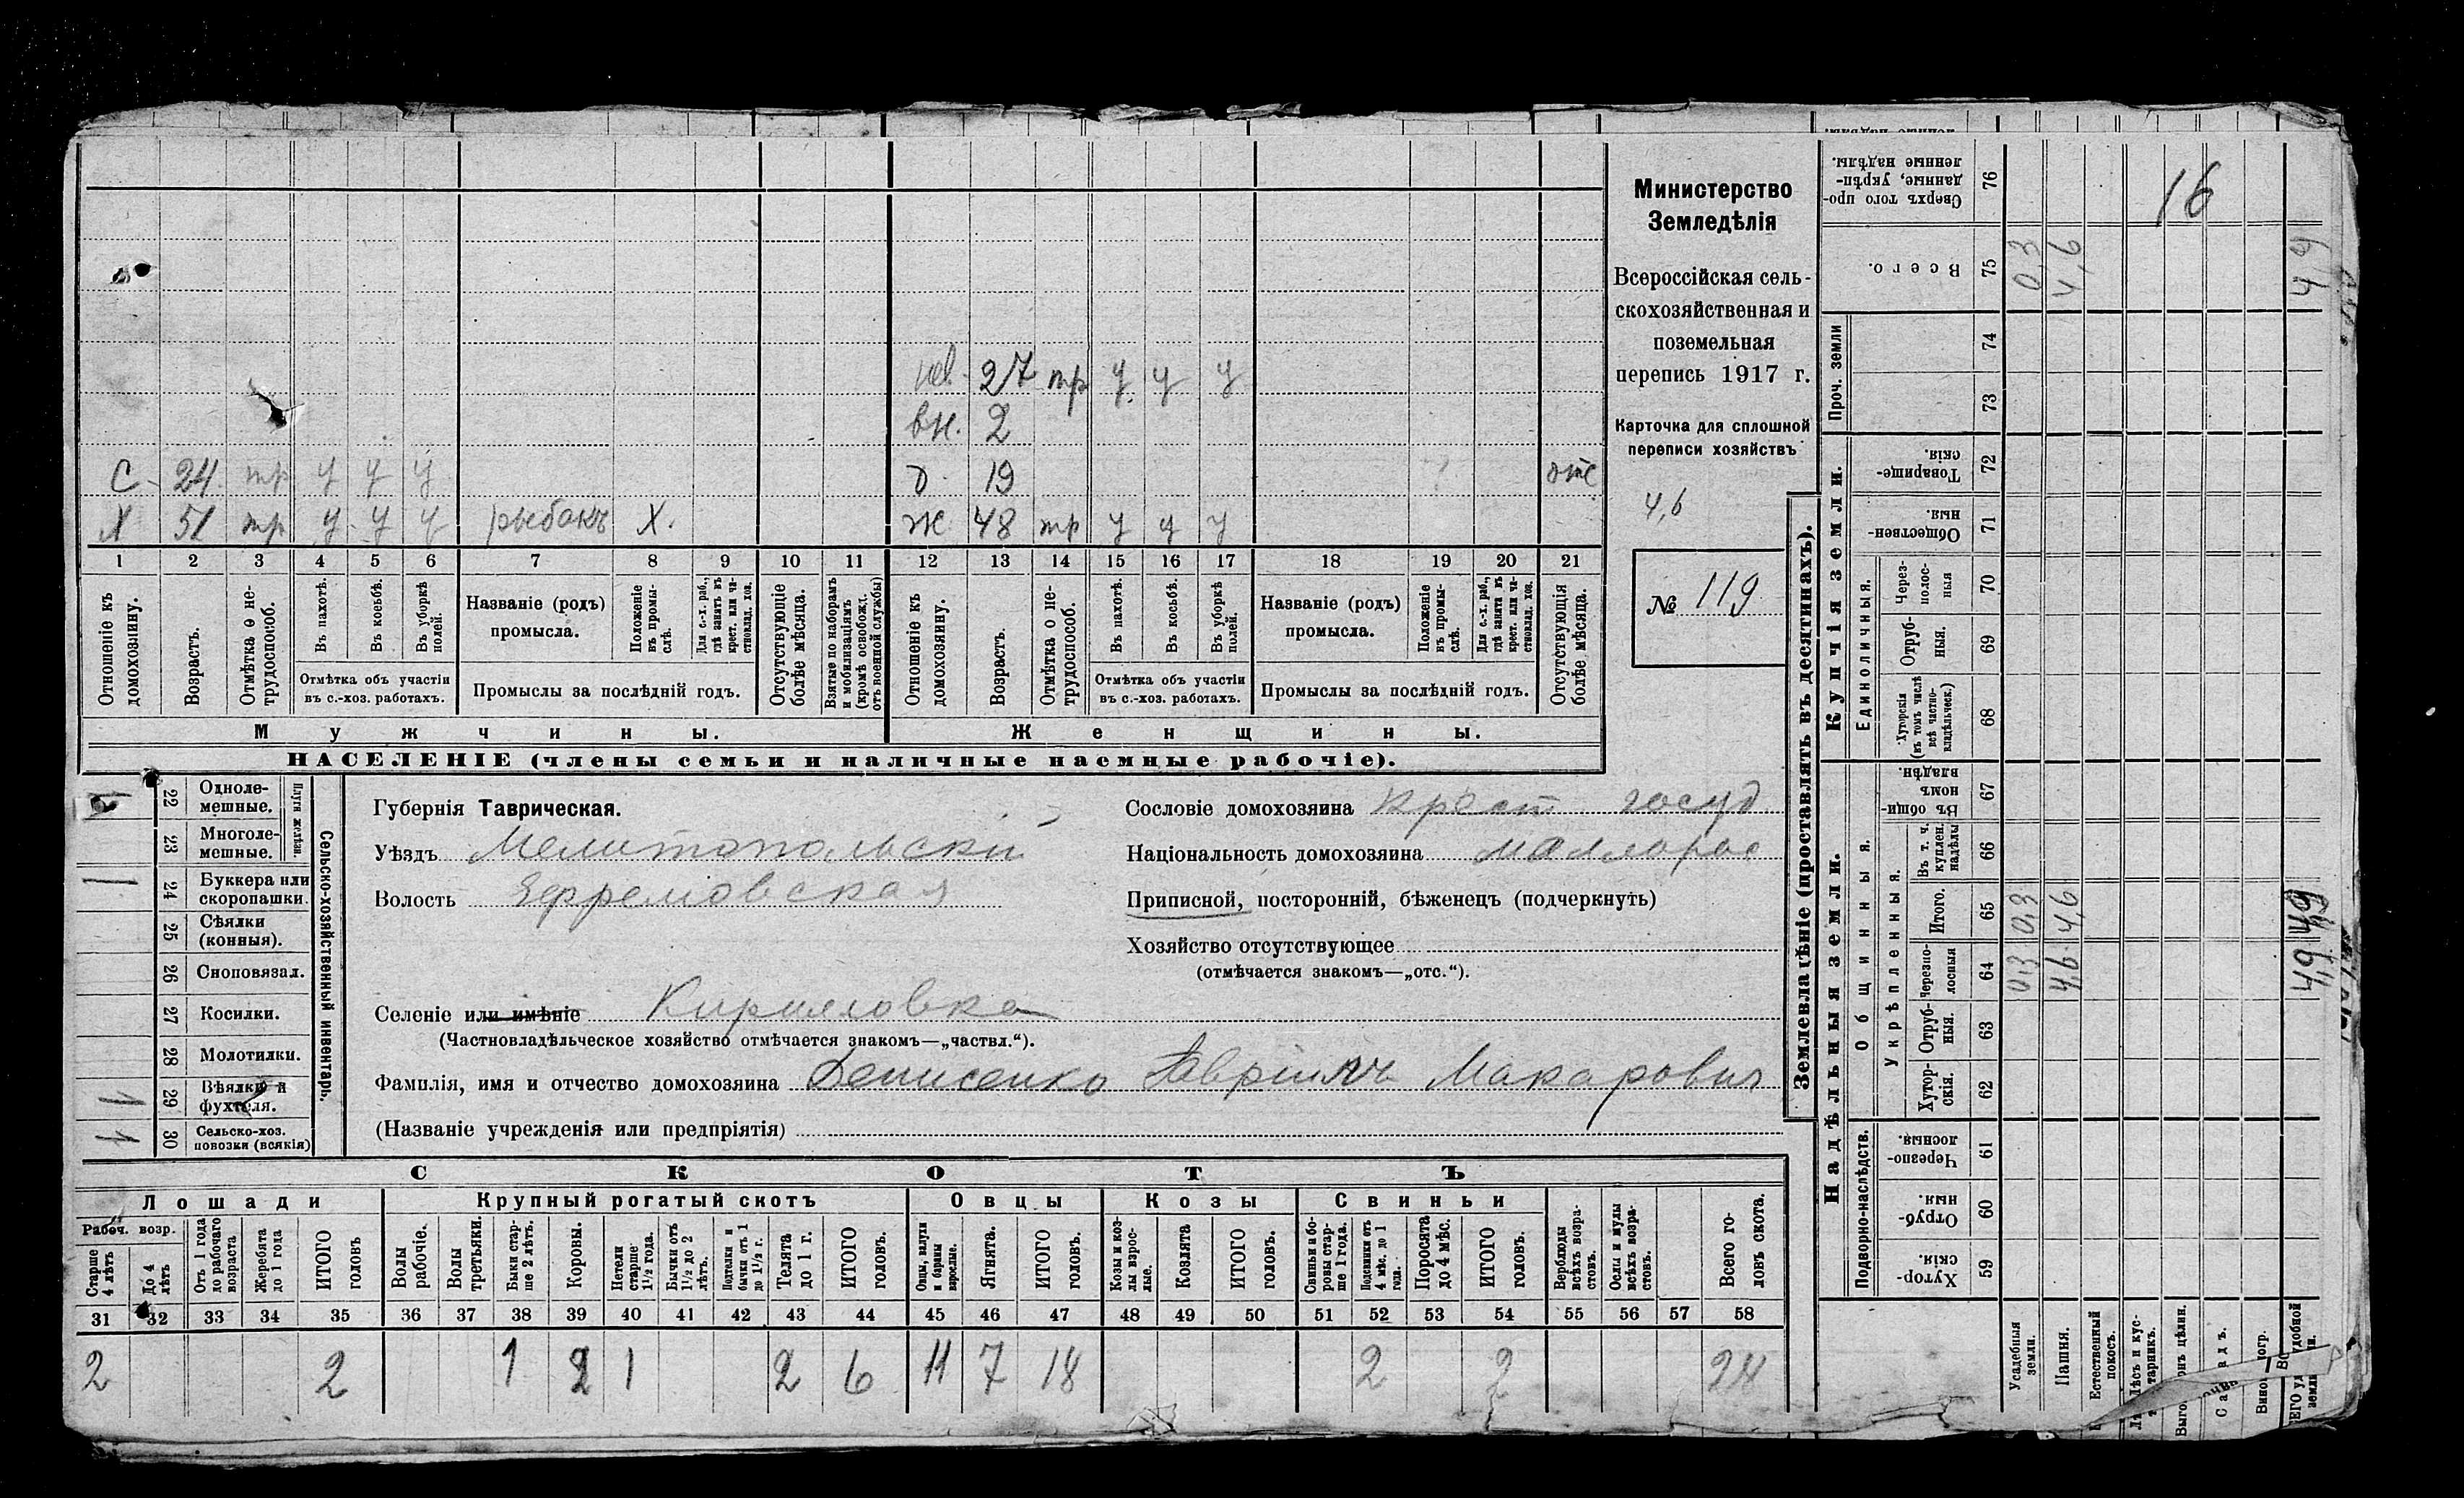 Министерство
Земледѣлія
Всероссійская сель-
скохозяйственная и
поземельная
перепись 1917 г.
Карточка для сплошной
переписи хозяйствъ
4,6
№ 119
нев. 27 тр у у у
вн. 2
С 24 тр у у у д. 19 отс
Х 51 тр у у у рыбакъ Х. ж 48 тр у у у
1 2 3 4 5 6 7 8 9 10 11 12 13 14 15 16 17 18 19 20 21
Отношеніе къ домохозяину.
Возрастъ.
Отмѣтка о не-трудоспособ.
Въ пахотѣ.
Въ косьбѣ.
Въ уборкѣ полей.
Отмѣтка объ участіи въ с.-хоз. работахъ.
Названіе (родъ) промысла.
Положеніе въ промы-слѣ.
Для с.-х. раб., гдѣ занятъ въ крест. или ча-стновлад. хоз.
Промыслы за послѣдній годъ.
Отсутствующіе болѣе мѣсяца.
Взятые по наборамъ и мобилизаціямъ (кромѣ освобожд. отъ военной службы)
Отношеніе къ домохозяину.
Возрастъ.
Отмѣтка о не-трудоспособ.
Въ пахотѣ.
Въ косьбѣ.
Въ уборкѣ полей.
Отмѣтка объ участіи въ с.-хоз. работахъ.
Названіе (родъ) промысла.
Положеніе въ промы-слѣ.
Для с.-х. раб., гдѣ занята въ крест. или ча-стновлад. хоз.
Промыслы за послѣдній годъ.
Отсутствующія болѣе мѣсяца.
Мужчины. Женщины.
НАСЕЛЕНІЕ (члены семьи и наличные наемные рабочіе).
Сельско-хозяйственный инвентарь.
Плуги желѣзн.
22 Одноле-мешные.
23 Многоле-мешные.
1 24 Буккера или скоропашки.
25 Сѣялки (конныя).
26 Сноповязал.
27 Косилки.
28 Молотилки.
1 29 Вѣялки и фухтеля.
1 30 Сельско-хоз. повозки (всякія)
Губернія Таврическая.
Уѣздъ Мелитопольскій
Волость Ефремовская
Сословіе домохозяина Крест госуд
Національность домохозяина малорос
Приписной, посторонній, бѣженецъ (подчеркнуть)
Хозяйство отсутствующее
(отмѣчается знакомъ—„отс.“).
Селеніе или имѣніе Кирилловка
(Частновладѣльческое хозяйство отмѣчается знакомъ—„частвл.“).
Фамилія, имя и отчество домохозяина Денисенко Гавріилъ Макарович
(Названіе учрежденія или предпріятія)
СКОТЪ
Лошади Крупный рогатый скотъ Овцы Козы Свиньи
Рабоч. возр.
Старше 4 лѣтъ
До 4 лѣтъ
Отъ 1 года до рабочаго возраста
Жеребята до 1 года
ИТОГО головъ
Волы рабочіе.
Волы третьяки.
Быки стар-ше 2 лѣтъ.
Коровы.
Нетели старше 1½ года.
Бычки отъ 1½ до 2 лѣтъ.
Подтелки и бычки отъ 1 до 1½ г.
Телята до 1 г.
ИТОГО головъ.
Овцы, валухи и бараны взрослые.
Ягнята.
ИТОГО головъ.
Козы и коз-лы взрос-лые.
Козлята
ИТОГО головъ.
Свиньи и бо-ровы стар-ше 1 года.
Подсвинки отъ 4 мѣс. до 1 года.
Поросята до 4 мѣс.
ИТОГО головъ.
Верблюды всѣхъ возра-стовъ.
Ослы и мулы всѣхъ возра-стовъ.
Всего го-ловъ скота.
31 32 33 34 35 36 37 38 39 40 41 42 43 44 45 46 47 48 49 50 51 52 53 54 55 56 57 58
2 2 1 2 1 2 6 11 7 18 2 2 28
Землевладѣніе (проставлять въ десятинахъ).
Купчія земли.
Надѣльныя земли.
Сверхъ того про-данные, укрѣп-ленные надѣлы. 76 16
Всего. 75 0,3 4,6 4,9
Проч. земли 74
73
Товарище-скія. 72
Обществен-ныя. 71
Единоличныя.
Через-полос-ныя 70
Отруб-ныя. 69
Хуторскія (въ томъ числѣ всѣ частно-владѣльческ.) 68
Общинныя.
Въ общи-номъ владѣн. 67
Укрѣпленныя.
Въ т. ч. куплен. надѣлы 66
Итого. 65 0,3 4,6 4,9
Черезпо-лосныя 64 0,3 4,6 4,9
Отруб-ныя. 63
Хутор-скія. 62
Подворно-наслѣдств.
Черезпо-лосныя. 61
Отруб-ныя. 60
Хутор-скія. 59
Усадебныя земли.
Пашня.
Естественный покосъ.